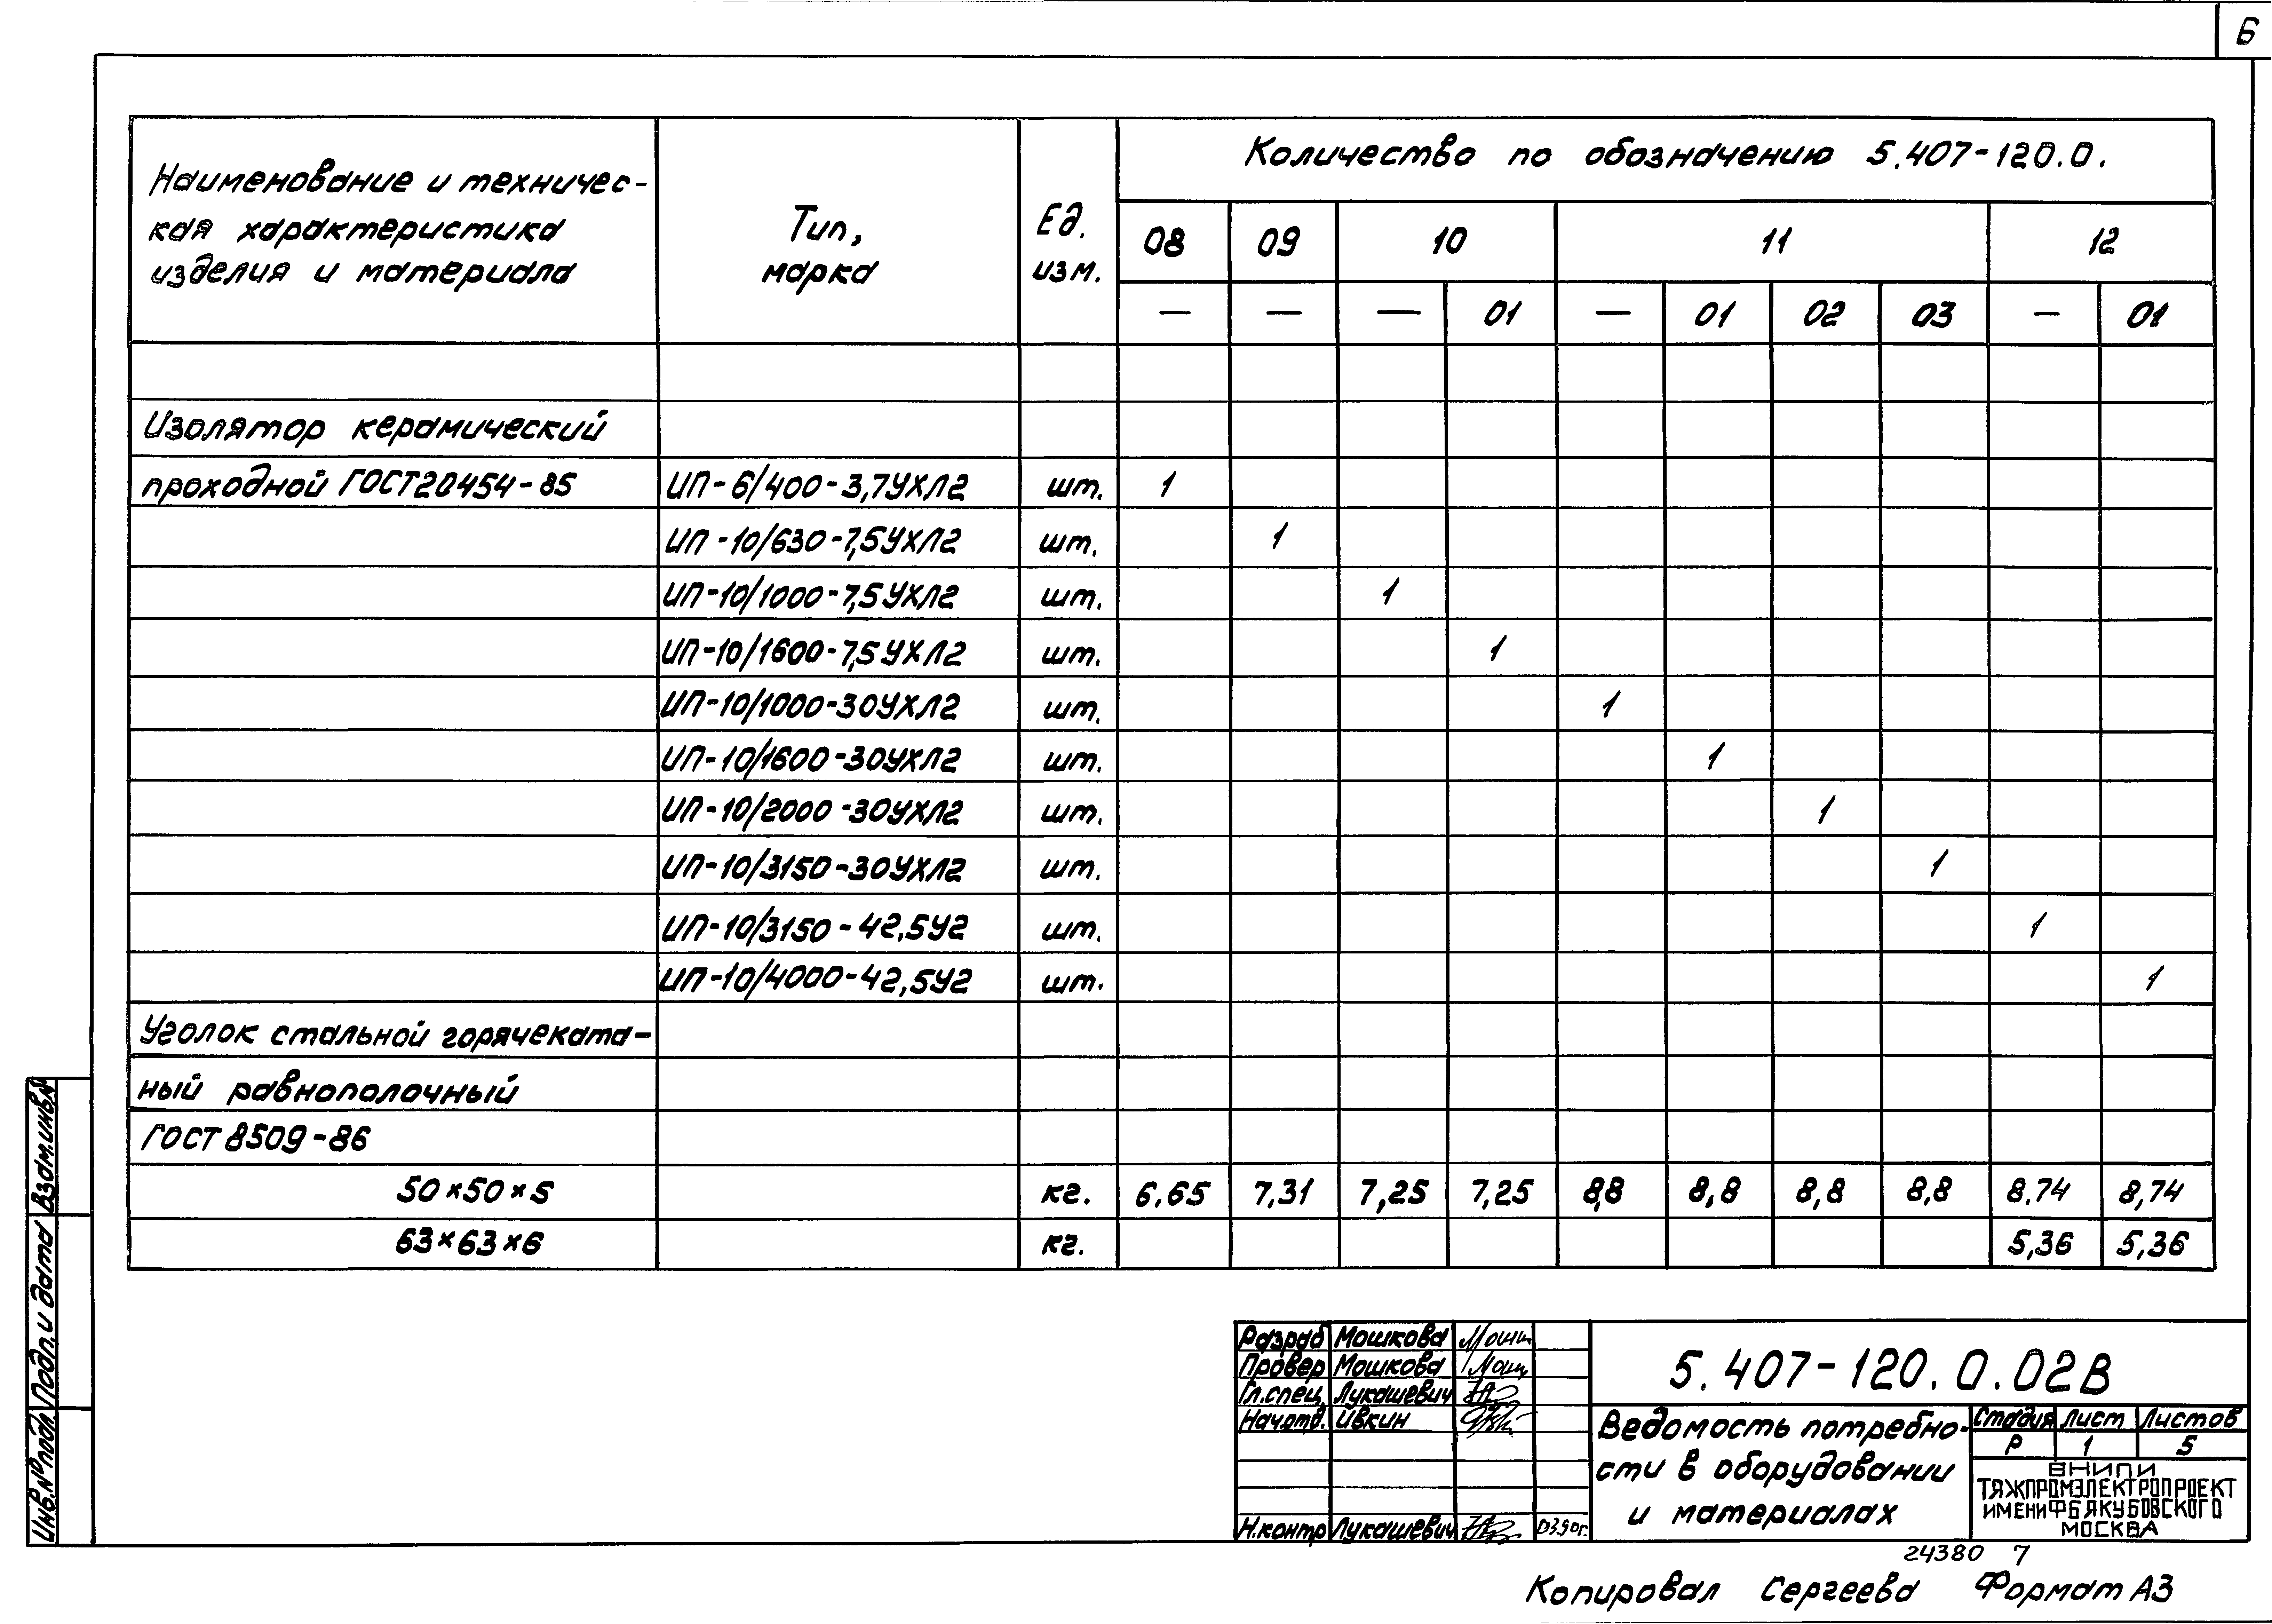 6
Наименование и техничес-
кая характеристика
изделия и материала
Тип,
марка
Ед.
изм.
Количество по обозначению 5.407-120.0.
08 09 10 11 12
— — — 01 — 01 02 03 — 01
Изолятор керамический
проходной ГОСТ 20454-85 ИП-6/400-3,7УХЛ2 шт. 1
ИП-10/630-7,5УХЛ2 шт. 1
ИП-10/1000-7,5УХЛ2 шт. 1
ИП-10/1600-7,5УХЛ2 шт. 1
ИП-10/1000-30УХЛ2 шт. 1
ИП-10/1600-30УХЛ2 шт. 1
ИП-10/2000-30УХЛ2 шт. 1
ИП-10/3150-30УХЛ2 шт. 1
ИП-10/3150-42,5У2 шт. 1
ИП-10/4000-42,5У2 шт. 1
Уголок стальной горячеката-
ный равнополочный
ГОСТ 8509-86
50×50×5 кг. 6,65 7,31 7,25 7,25 8,8 8,8 8,8 8,8 8,74 8,74
63×63×6 кг. 5,36 5,36
Инв.№подл. Подп. и дата Взам.инв.№
Разраб Мошкова
Провер Мошкова
Гл.спец. Лукашевич
Нач.отв. Ивкин
Н.контр Лукашевич 03.90г.
5.407-120.0.02В
Ведомость потребно-
сти в оборудовании
и материалах
Стадия Лист Листов
Р 1 5
ВНИПИ
ТЯЖПРОМЭЛЕКТРОПРОЕКТ
ИМЕНИ Ф.Б.ЯКУБОВСКОГО
МОСКВА
24380 7
Копировал Сергеева Формат А3